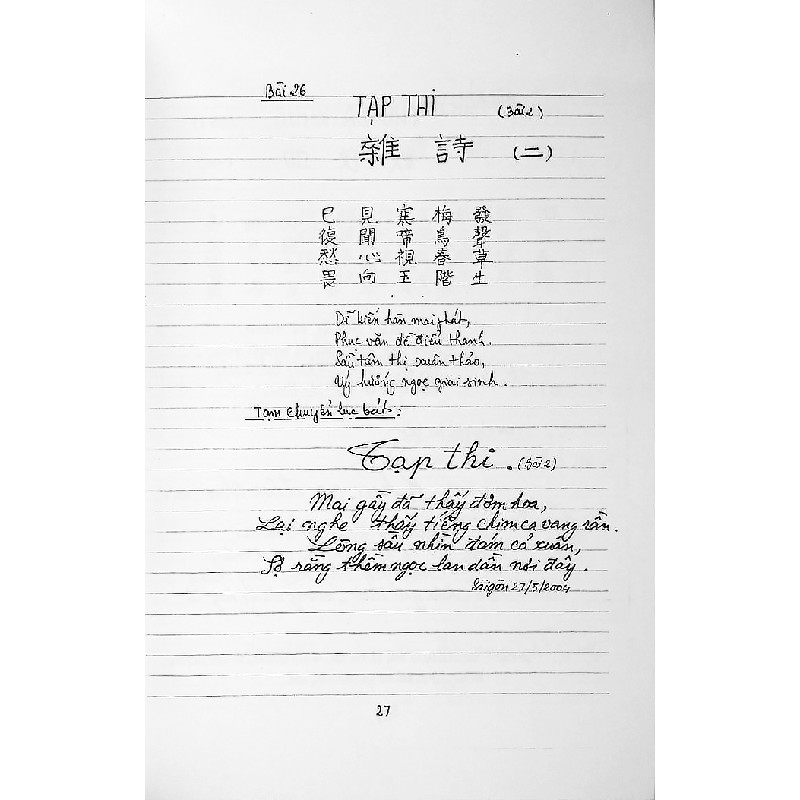 Bài 26
TẠP THI
(Bài 2)
雜 詩 (二)
已 見 寒 梅 發
復 聞 啼 鳥 聲
愁 心 視 春 草
畏 向 玉 階 生
Dĩ kiến hàn mai phát,
Phục văn đề điểu thanh.
Sầu tâm thị xuân thảo,
Úy hướng ngọc giai sinh.
Tạm chuyển lục bát:
Tạp thi. (Bài 2)
Mai gầy đã thấy đơm hoa,
Lại nghe thấy tiếng chim ca vang rần.
Lòng sầu nhìn đám cỏ xuân,
Sợ rằng thềm ngọc lan dần nơi đây.
Saigon 27/5/2009
27